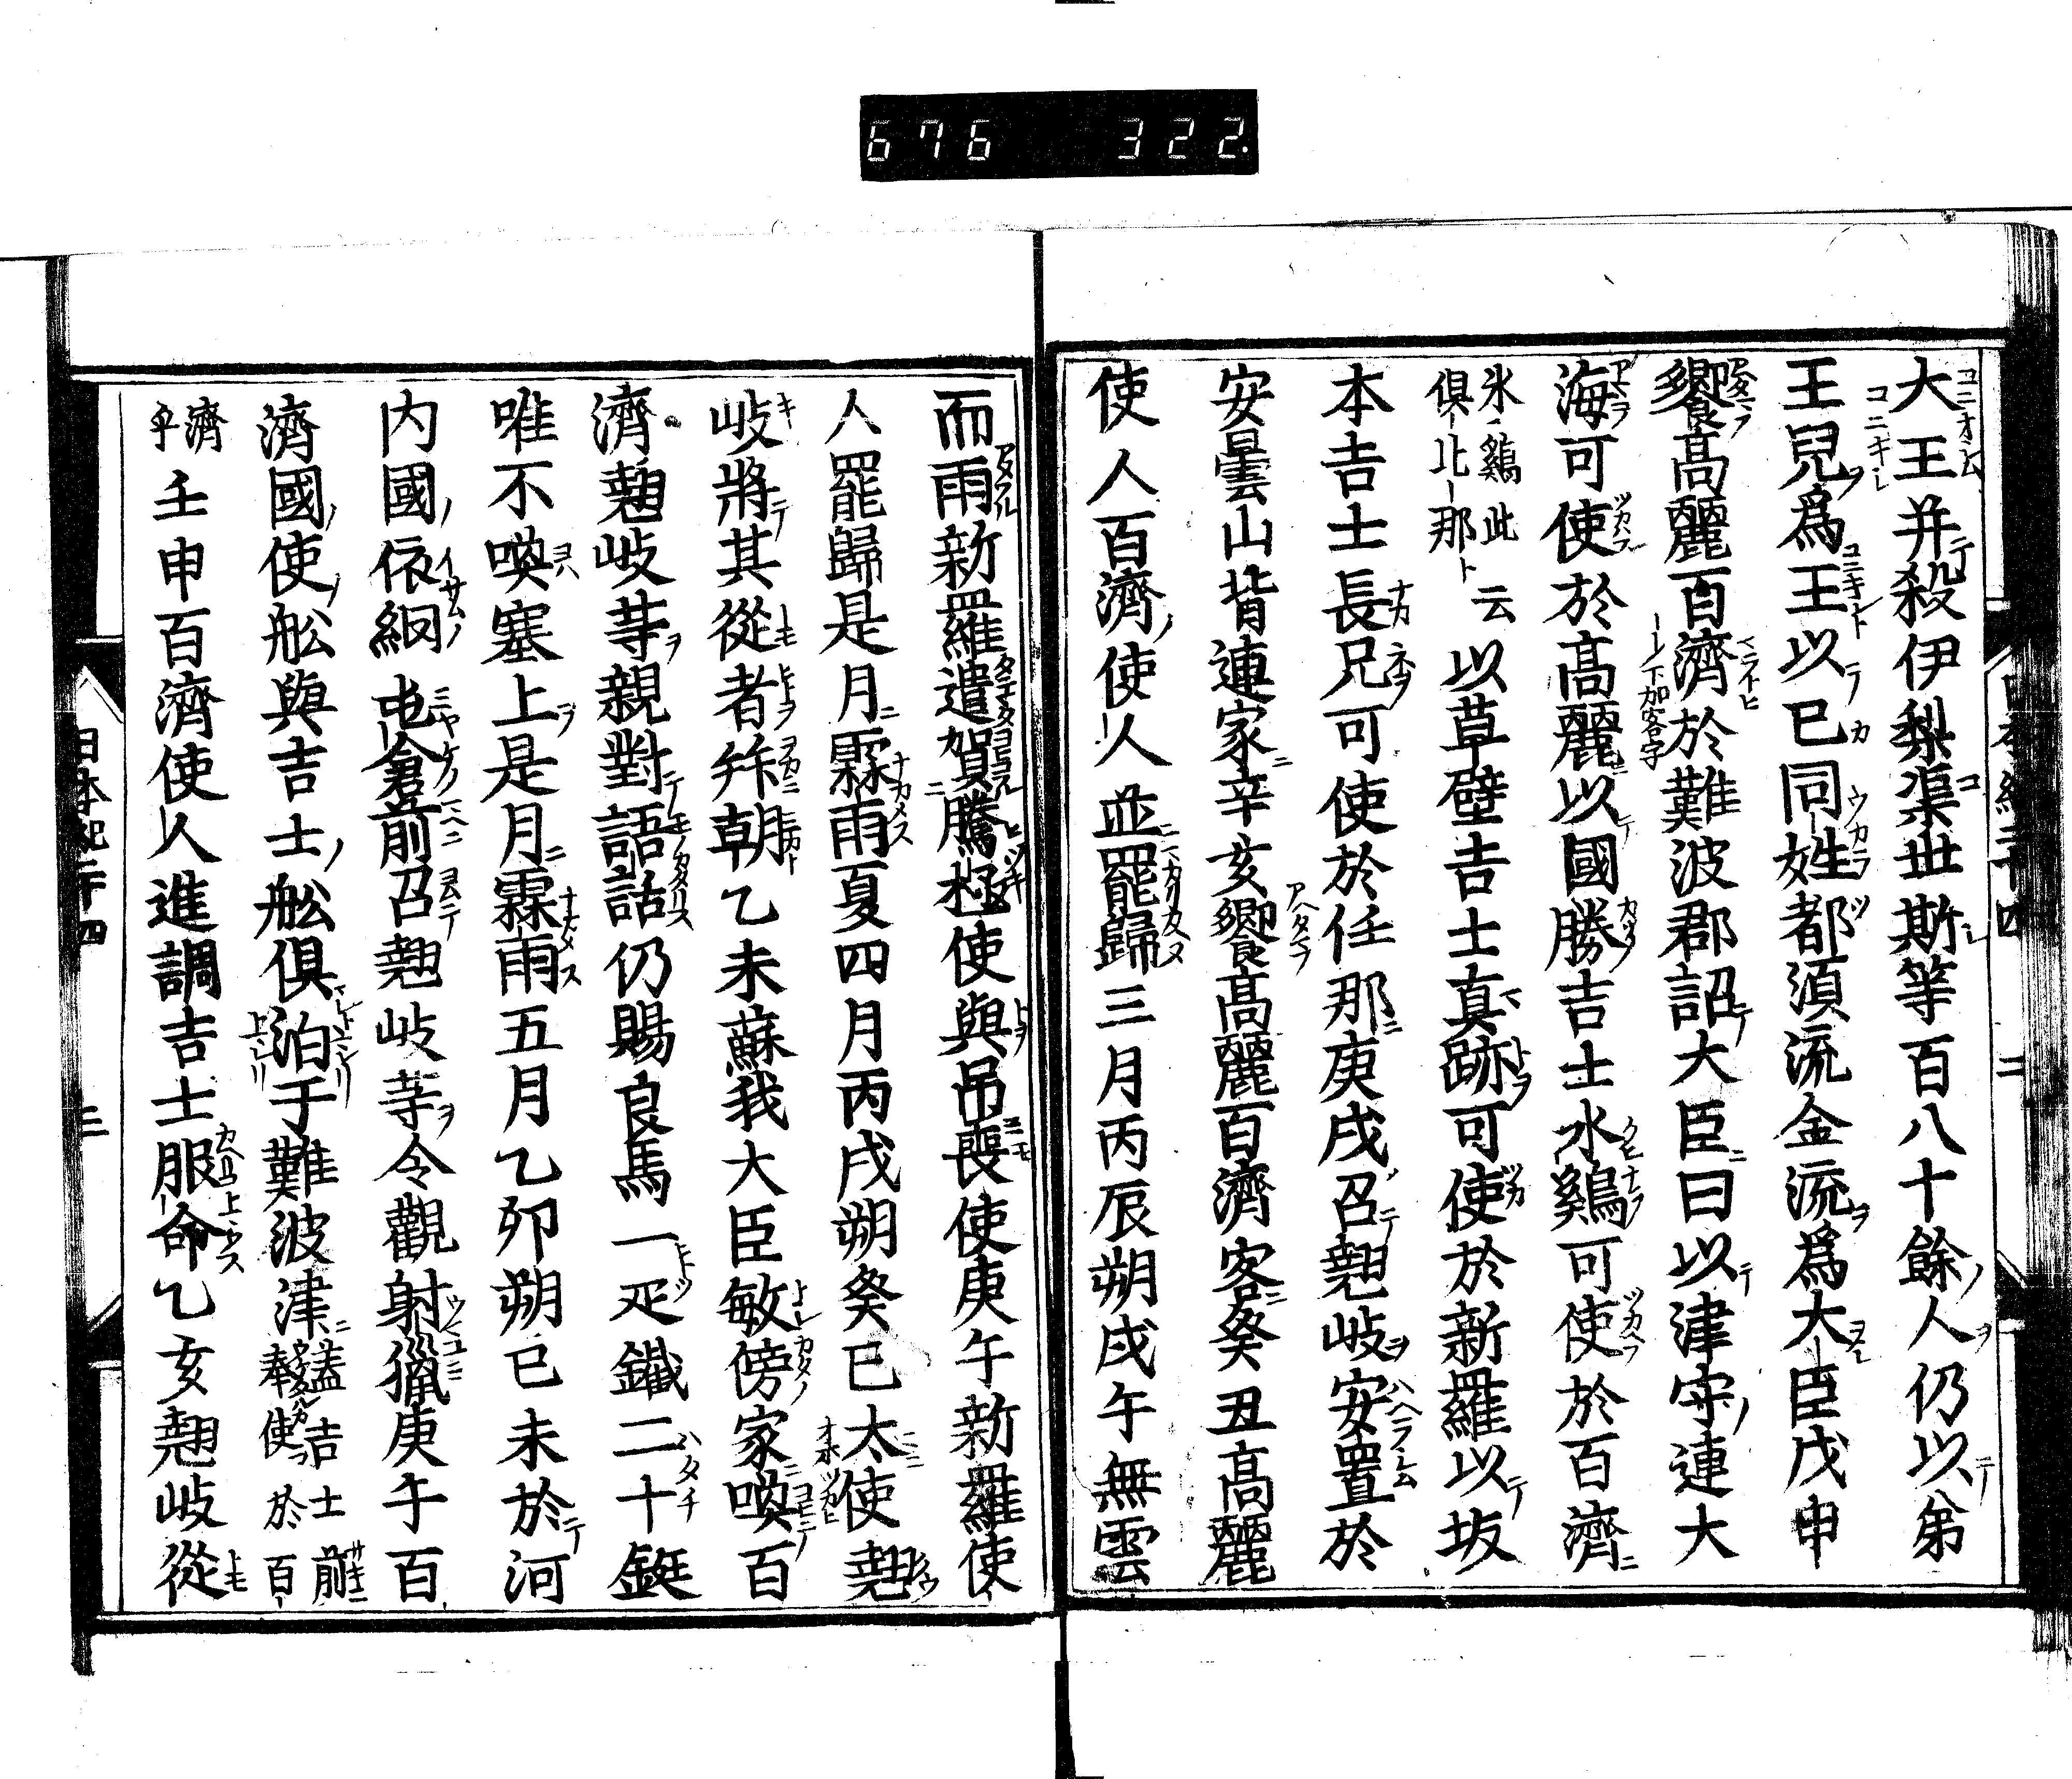 676 322.
大王并殺伊梨渠世斯等百八十餘人仍以弟
王兒爲王以已同姓都須流金流爲大臣戊申
饗髙麗百濟於難波郡詔大臣曰以津守連大
海可使於髙麗以國勝吉士水鷄可使於百濟
水鷄此云
倶比那
以草壁吉士真跡可使於新羅以坂
本吉士長兄可使於任那庚戌召翹岐安置於
安曇山背連家辛亥饗髙麗百濟客癸丑髙麗
使人百濟使人並罷歸三月丙辰朔戊午無雲
而雨新羅遣賀騰極使與吊喪使庚午新羅使
人罷歸是月霖雨夏四月丙戌朔癸巳太使翹
岐將其從者拜朝乙未蘇我大臣敏傍家喚百
濟翹岐等親對語話仍賜良馬一疋鐵二十鋌
唯不喚塞上是月霖雨五月乙卯朔己未於河
内國依網屯倉前召翹岐等令觀射獵庚午百
濟國使舩與吉士舩倶泊于難波津
蓋吉士前
奉使於百
濟
乎
壬申百濟使人進調吉士服命乙亥翹岐從
日本紀二十四 三